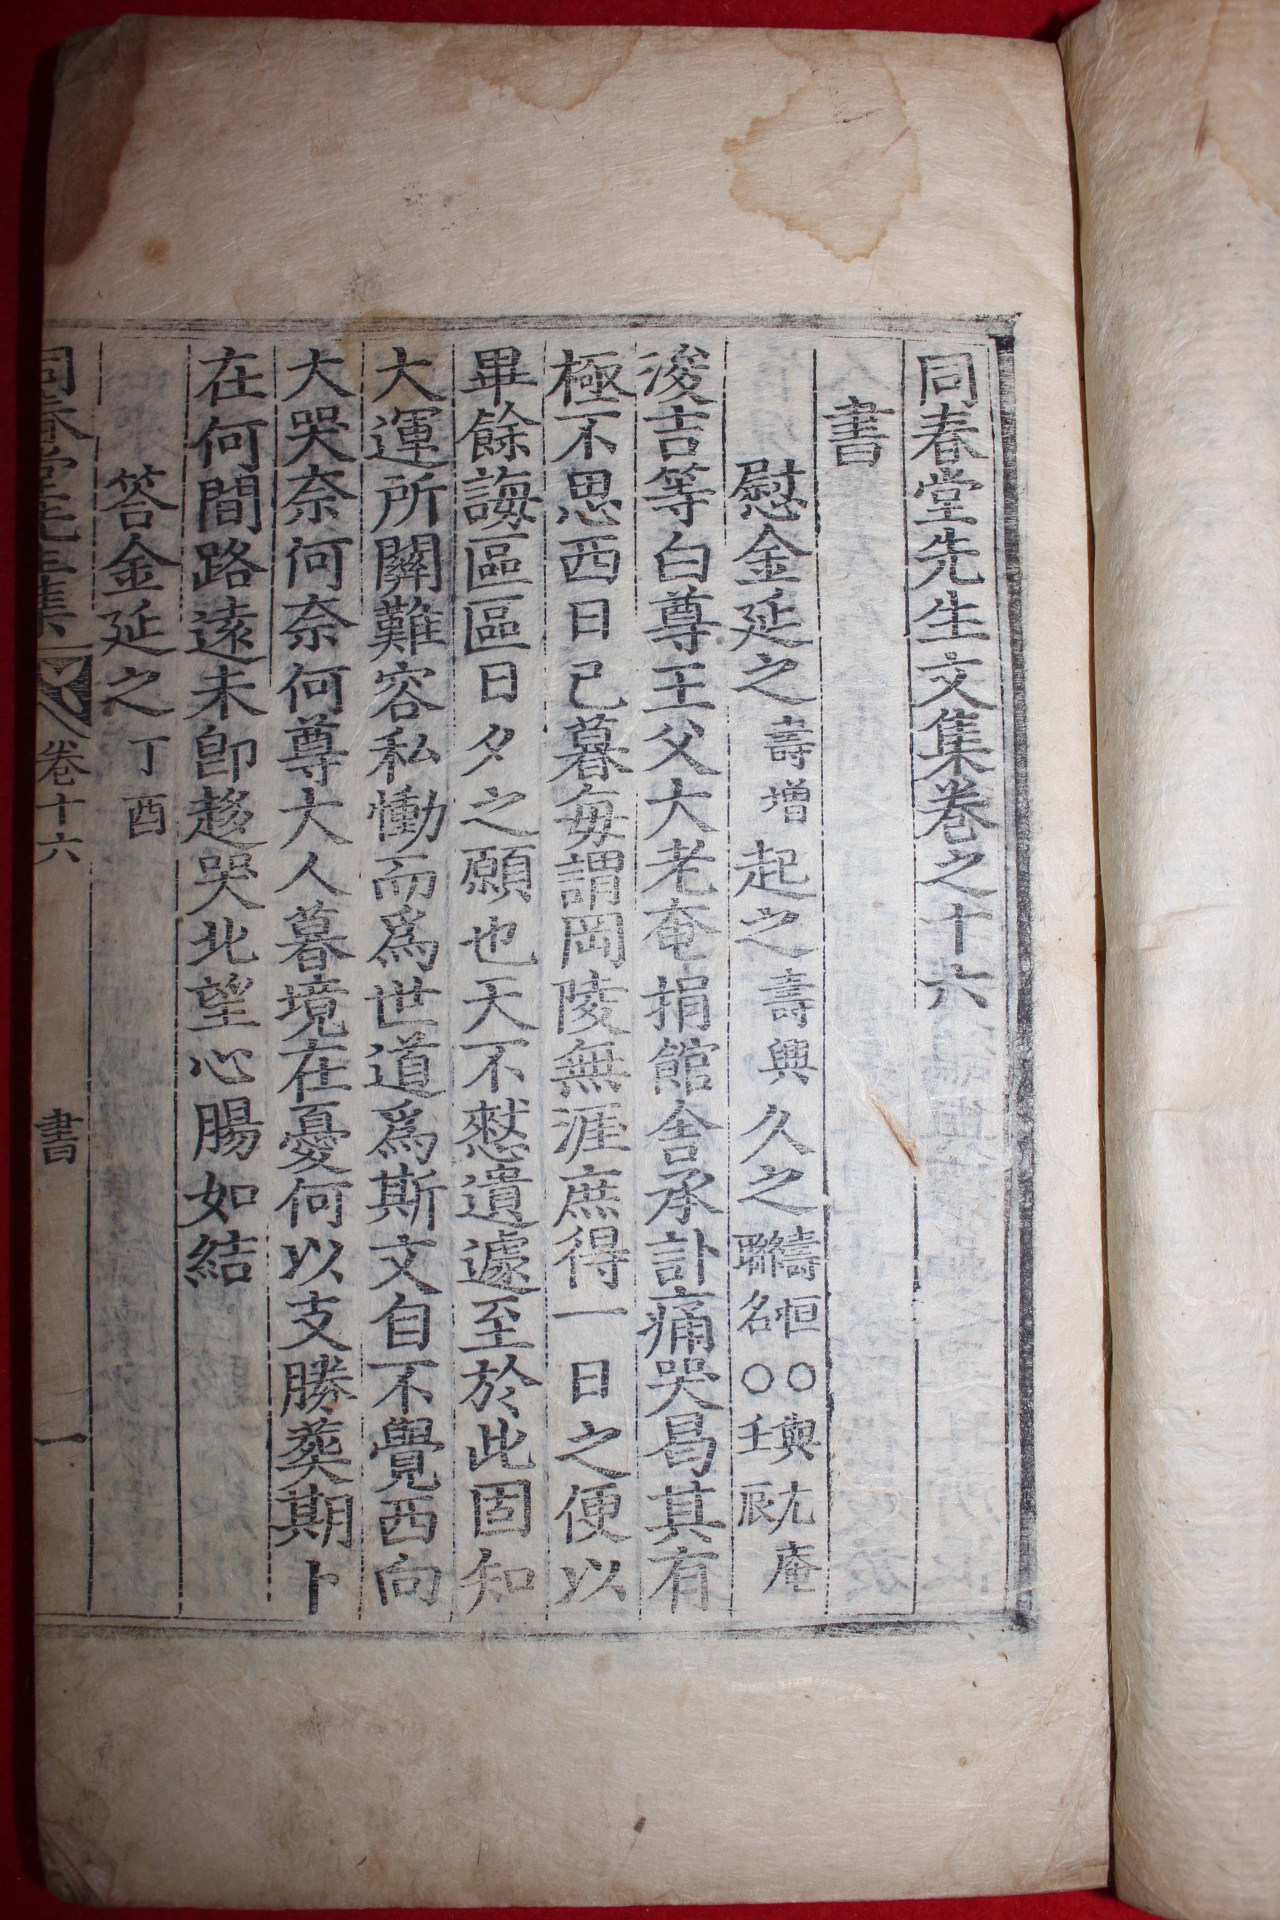 同春堂先生文集卷之十六
書
慰金延之壽增起之壽興久之壽恒聯名○○與尤庵壬辰
浚吉等白尊王父大老奄捐館舍承訃痛哭曷其有
極不思西日已暮每謂岡陵無涯庶得一日之便以
畢餘誨區區日夕之願也天不憖遺遽至於此固知
大運所關難容私慟而爲世道爲斯文自不覺西向
大哭奈何奈何尊大人暮境在憂何以支勝葬期卜
在何間路遠未卽趍哭北望心腸如結
答金延之丁酉
同春堂先生集 卷十六 書 一